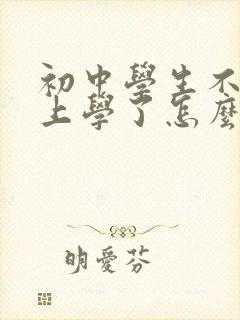 初中學生不
上學了怎麼
明愛芬